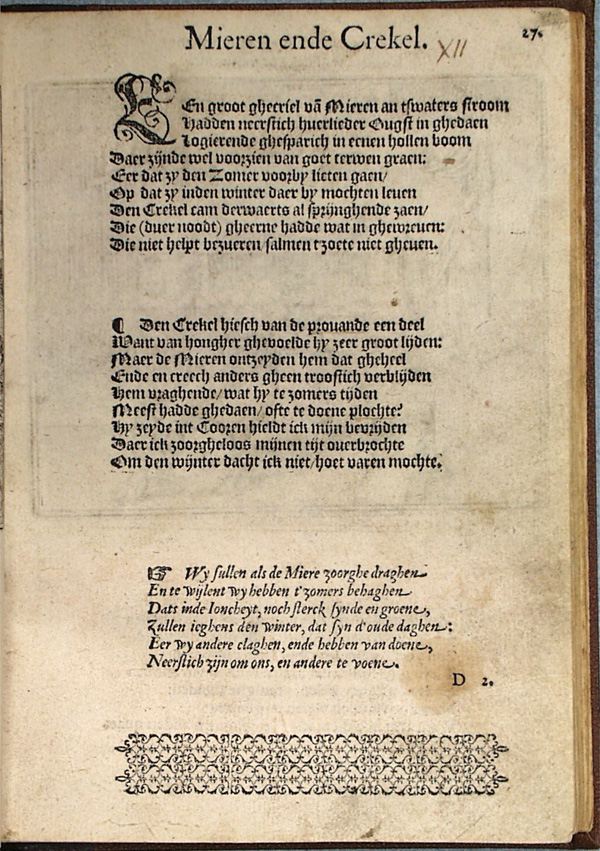 Mieren ende Crekel.
XII
27.
EEn groot gheeriel vā Mieren an tswaters stroom
Hadden neerstich huerlieder Ougst in ghedaen
Logierende ghesparich in eenen hollen boom
Daer zijnde wel voorzien van goet terwen graen:
Eer dat zy den Zomer voorby lieten gaen/
Op dat zy inden winter daer by mochten leuen
Den Crekel cam derwaerts al sprijnghende zaen/
Die (duer noodt) gheerne hadde wat in ghewreuen:
Die niet helpt bezueren/salmen tzoete niet gheuen.
¶ Den Crekel hiesch van de prouande een deel
Want van hongher ghevoelde hy zeer groot lijden:
Maer de Mieren ontzeyden hem dat gheheel
Ende en creech anders gheen troostich verblijden
Hem vraghende/wat hy te zomers tijden
Meest hadde ghedaen/ofte te doene plochte?
Hy zeyde int Cooren hieldt ick mijn bevrijden
Daer ick zoorgheloos mijnen tijt overbrochte
Om den wijnter dacht ick niet/hoet varen mochte.
☞ Wy sullen als de Miere zoorghe draghen
En te wijlent wy hebben t'zomers behaghen
Dats inde Ioncheyt, noch sterck synde en groene,
Zullen ieghens den winter, dat syn d'oude daghen:
Eer wy andere claghen, ende hebben van doene,
Neerstich zijn om ons, en andere te voene.
D 2.